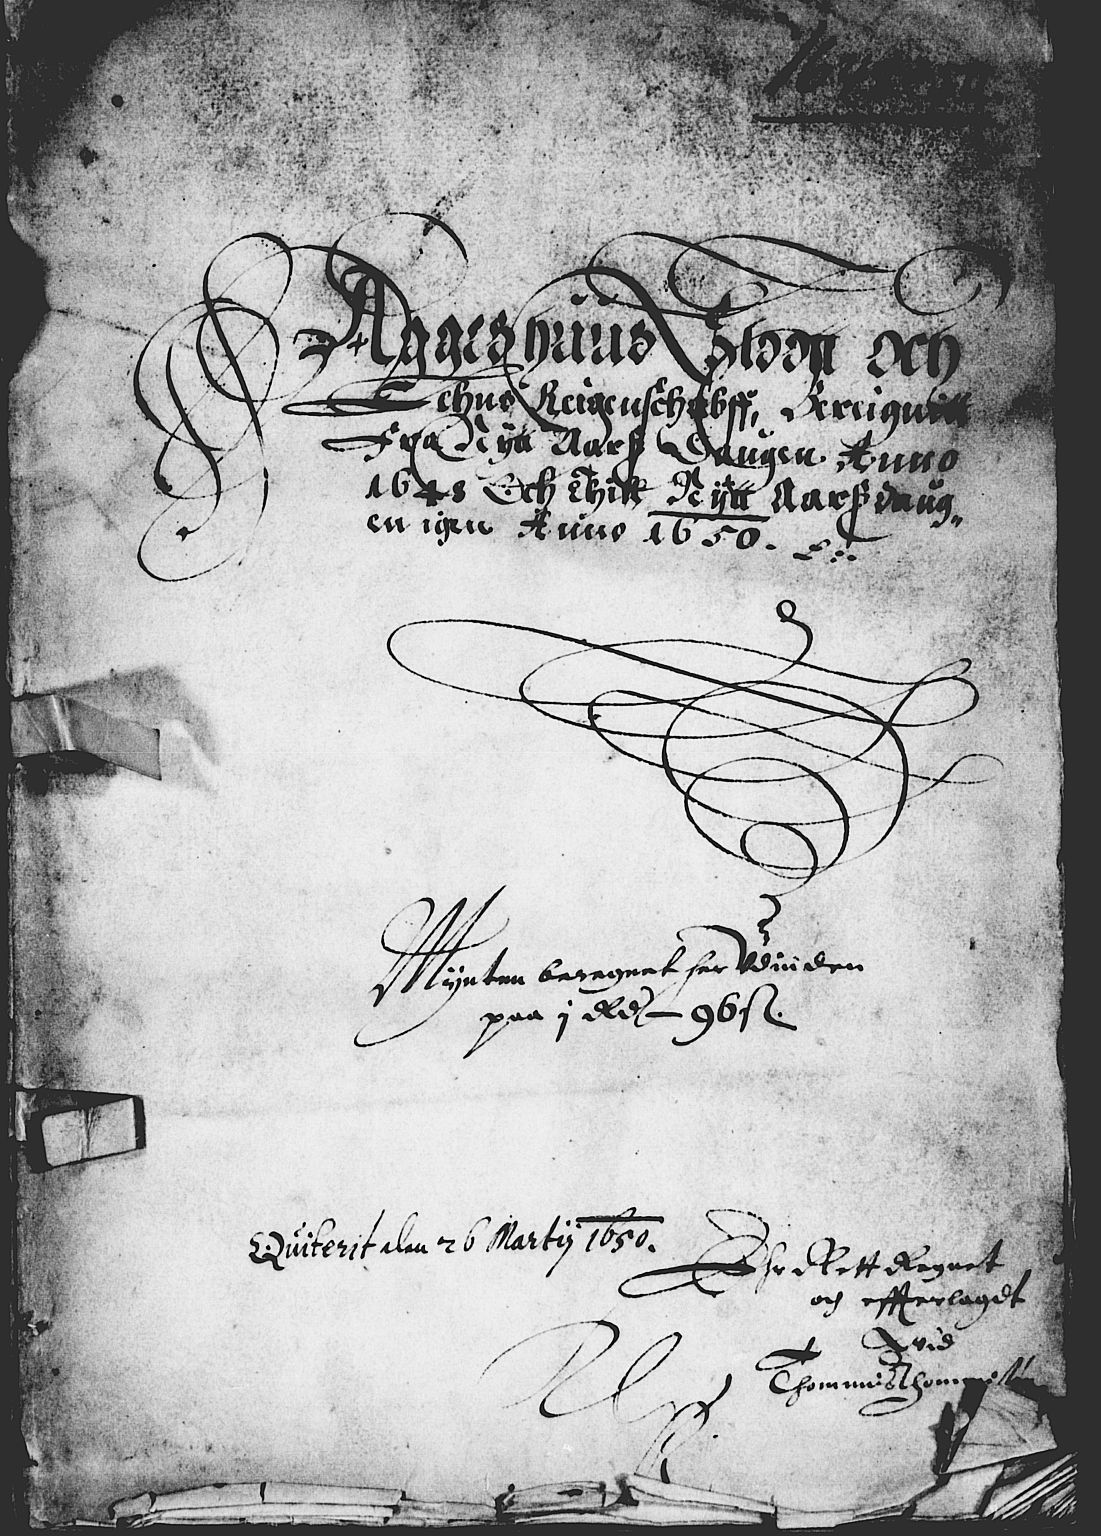 Aggershuus Slodtt och
Lehns Reigenschabff, Bereignitt
Fra Nÿtt Aarß Daugen Anno
1648 Och Thill Nÿtt Aarß daug„
en igen Anno 1650.
Mÿnten beregnet her Vdinden
paa j Rdr 96 ß.
Quiterit den 26 Martij 1650.
Ehr Rett Regnet
och effterlagdt
Thommis Thommis